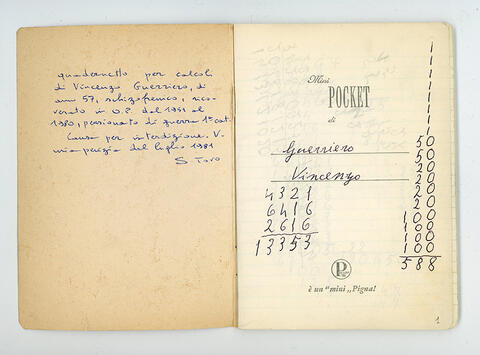 quadernetto per calcoli
di Vincenzo Guerriero, di
anni 57, schizofrenico, rico-
verato in O.P. dal 1951 al
1980, pensionato di guerra 1ª cat.
Causa per interdizione. V.
mia perizia del luglio 1981
S. Toro
Mini
POCKET
di
Guerriero
Vincenzo
4321
6416
2616
13353
1
1
1
1
1
1
1
1
50
50
20
20
20
20
100
100
100
588
P
è un "mini„ Pigna!
1